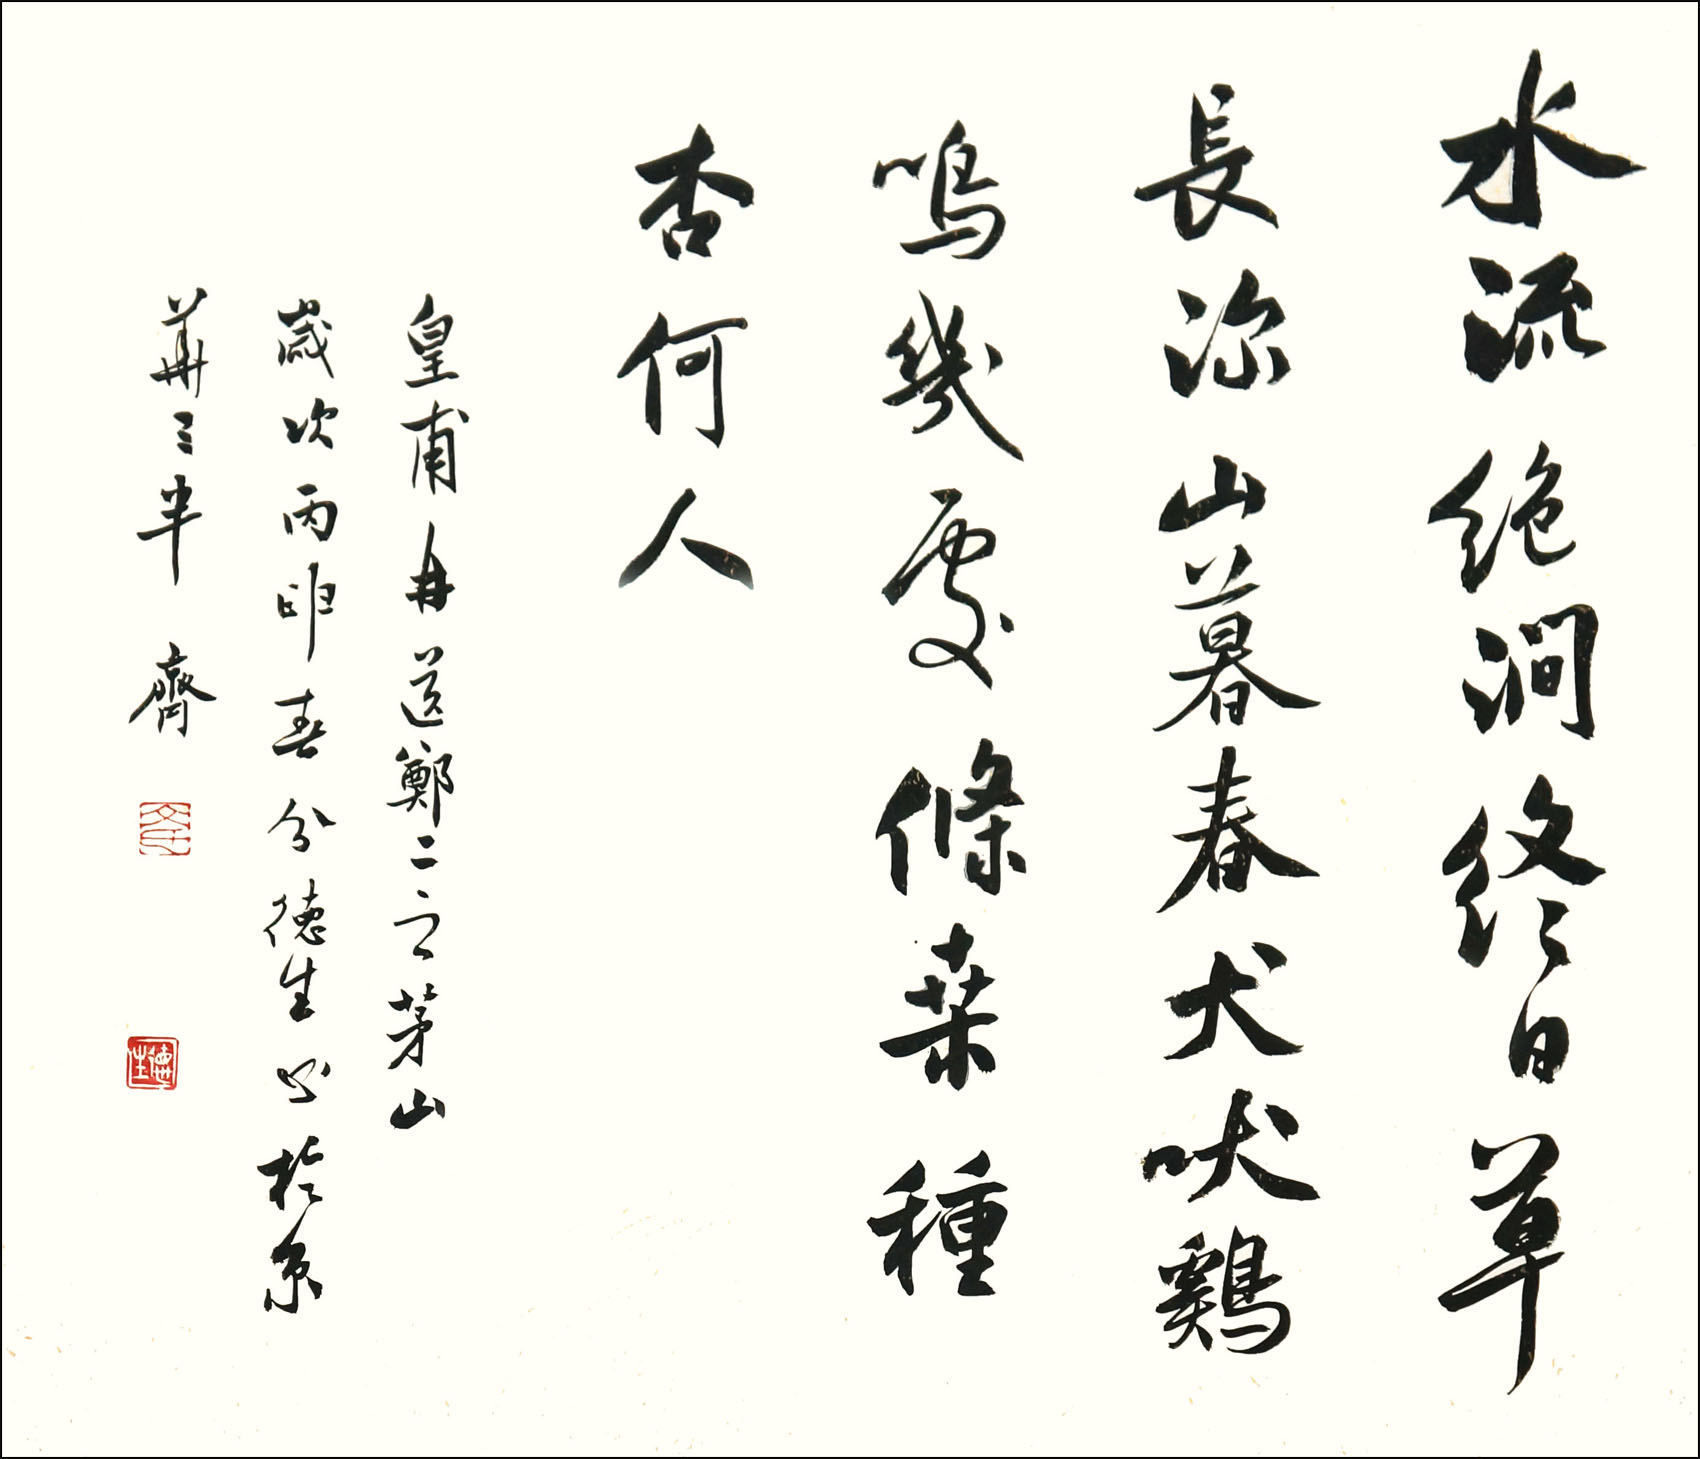 水流絶澗終日草
長深山暮春犬吠鷄
鳴幾處條桒種
杏何人
皇甫冉送鄭二之茅山
歲次丙申春分德生书於京
華三半齋
德生